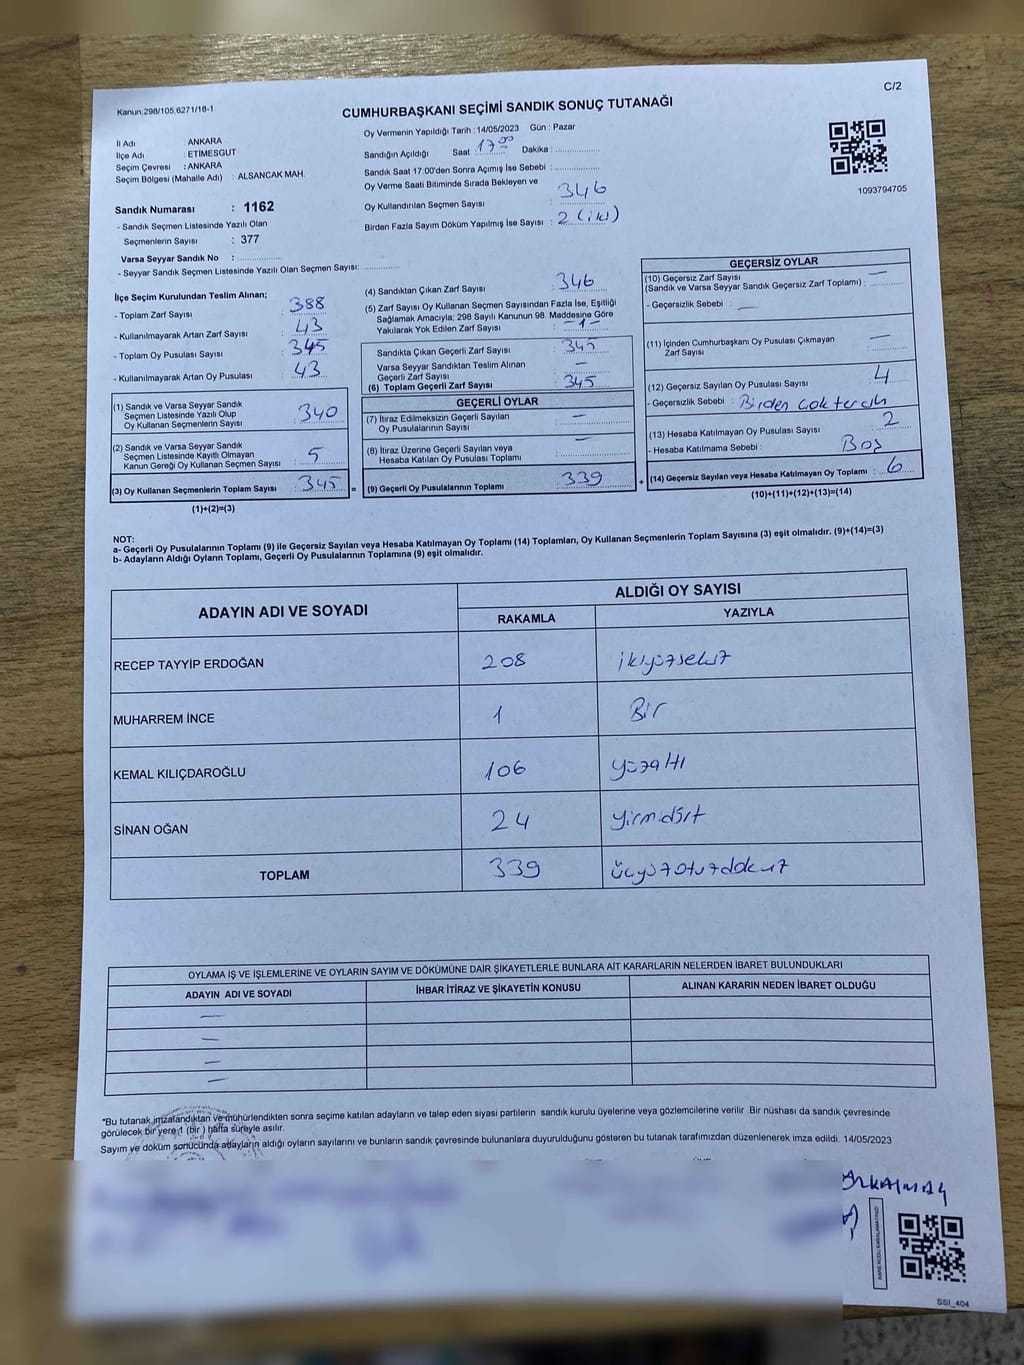 C/2
Kanun:298/105,6271/18-1
CUMHURBAŞKANI SEÇİMİ SANDIK SONUÇ TUTANAĞI
1093794705
İl Adı : ANKARA
İlçe Adı : ETİMESGUT
Seçim Çevresi : ANKARA
Seçim Bölgesi (Mahalle Adı) : ALSANCAK MAH.
Sandık Numarası : 1162
- Sandık Seçmen Listesinde Yazılı Olan
Seçmenlerin Sayısı : 377
Varsa Seyyar Sandık No :
- Seyyar Sandık Seçmen Listesinde Yazılı Olan Seçmen Sayısı:
Oy Vermenin Yapıldığı Tarih : 14/05/2023 Gün : Pazar
Sandığın Açıldığı Saat : 17:00 Dakika :
Sandık Saat 17:00'den Sonra Açımış İse Sebebi :
Oy Verme Saati Bitiminde Sırada Bekleyen ve
Oy Kullandırılan Seçmen Sayısı : 346
Birden Fazla Sayım Döküm Yapılmış İse Sayısı : 2 (iki)
İlçe Seçim Kurulundan Teslim Alınan;
- Toplam Zarf Sayısı : 388
- Kullanılmayarak Artan Zarf Sayısı : 43
- Toplam Oy Pusulası Sayısı : 345
- Kullanılmayarak Artan Oy Pusulası : 43
(1) Sandık ve Varsa Seyyar Sandık
Seçmen Listesinde Yazılı Olup
Oy Kullanan Seçmenlerin Sayısı : 340
(2) Sandık ve Varsa Seyyar Sandık
Seçmen Listesinde Kayıtlı Olmayan
Kanun Gereği Oy Kullanan Seçmen Sayısı : 5
(3) Oy Kullanan Seçmenlerin Toplam Sayısı : 345 =
(1)+(2)=(3)
(4) Sandıktan Çıkan Zarf Sayısı : 346
(5) Zarf Sayısı Oy Kullanan Seçmen Sayısından Fazla İse, Eşitliği
Sağlamak Amacıyla; 298 Sayılı Kanunun 98. Maddesine Göre
Yakılarak Yok Edilen Zarf Sayısı : -1-
Sandıkta Çıkan Geçerli Zarf Sayısı : 345
Varsa Seyyar Sandıktan Teslim Alınan
Geçerli Zarf Sayısı : —
(6) Toplam Geçerli Zarf Sayısı : 345
GEÇERLİ OYLAR
(7) İtiraz Edilmeksizin Geçerli Sayılan
Oy Pusulalarının Sayısı : —
(8) İtiraz Üzerine Geçerli Sayılan veya
Hesaba Katılan Oy Pusulası Toplamı : —
(9) Geçerli Oy Pusulalarının Toplamı : 339 +
GEÇERSİZ OYLAR
(10) Geçersiz Zarf Sayısı
(Sandık ve Varsa Seyyar Sandık Geçersiz Zarf Toplamı) : —
- Geçersizlik Sebebi : —
(11) İçinden Cumhurbaşkanı Oy Pusulası Çıkmayan
Zarf Sayısı : —
(12) Geçersiz Sayılan Oy Pusulası Sayısı : 4
- Geçersizlik Sebebi : Birden çok tercih
(13) Hesaba Katılmayan Oy Pusulası Sayısı : 2
- Hesaba Katılmama Sebebi : Boş
(14) Geçersiz Sayılan veya Hesaba Katılmayan Oy Toplamı : 6
(10)+(11)+(12)+(13)=(14)
NOT:
a- Geçerli Oy Pusulalarının Toplamı (9) ile Geçersiz Sayılan veya Hesaba Katılmayan Oy Toplamı (14) Toplamları, Oy Kullanan Seçmenlerin Toplam Sayısına (3) eşit olmalıdır. (9)+(14)=(3)
b- Adayların Aldığı Oyların Toplamı, Geçerli Oy Pusulalarının Toplamına (9) eşit olmalıdır.
ADAYIN ADI VE SOYADI
ALDIĞI OY SAYISI
RAKAMLA YAZIYLA
RECEP TAYYİP ERDOĞAN 208 ikiyüzsekiz
MUHARREM İNCE 1 Bir
KEMAL KILIÇDAROĞLU 106 yüzaltı
SİNAN OĞAN 24 yirmidört
TOPLAM 339 üçyüzotuzdokuz
OYLAMA İŞ VE İŞLEMLERİNE VE OYLARIN SAYIM VE DÖKÜMÜNE DAİR ŞİKAYETLERLE BUNLARA AİT KARARLARIN NELERDEN İBARET BULUNDUKLARI
ADAYIN ADI VE SOYADI İHBAR İTİRAZ VE ŞİKAYETİN KONUSU ALINAN KARARIN NEDEN İBARET OLDUĞU
—
—
—
—
*Bu tutanak imzalandıktan ve mühürlendikten sonra seçime katılan adayların ve talep eden siyasi partilerin sandık kurulu üyelerine veya gözlemcilerine verilir. Bir nüshası da sandık çevresinde
görülecek bir yere 1 (bir) hafta süreyle asılır.
Sayım ve döküm sonucunda adayların aldığı oyların sayılarını ve bunların sandık çevresinde bulunanlara duyurulduğunu gösteren bu tutanak tarafımızdan düzenlenerek imza edildi. 14/05/2023
KARE KODU KARALAMAYINIZ!
SSI_404